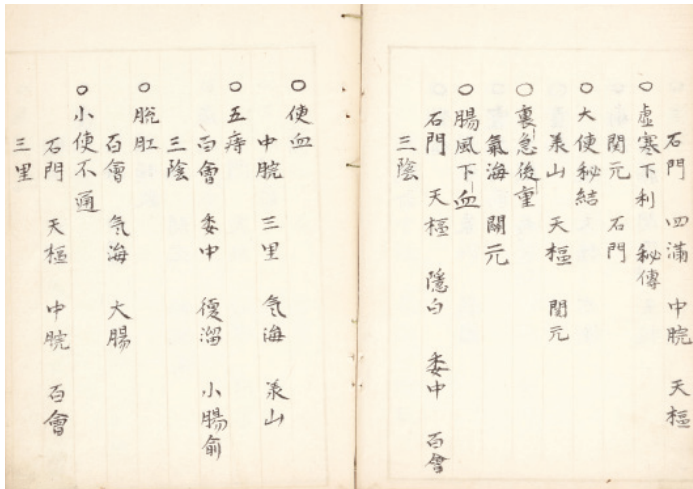 石門 四滿 中脘 天樞
○虚寒下利 秘傳
関元 石門
○大使秘結
承山 天樞 関元
○裏急後重
氣海 關元
○腸風下血
石門 天樞 隱白 委中 百會
三陰
○使血
中脘 三里 気海 承山
○五痔
百會 委中 復溜 小腸俞
三陰
○脱肛
百會 気海 大腸
○小使不通
石門 天樞 中脘 百會
三里